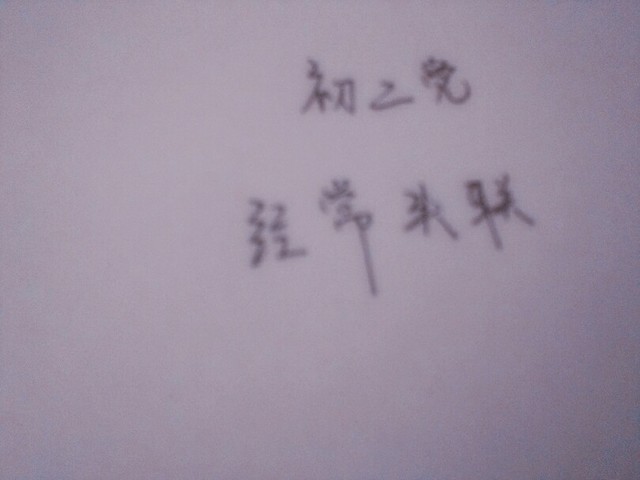 初二党
经常失联